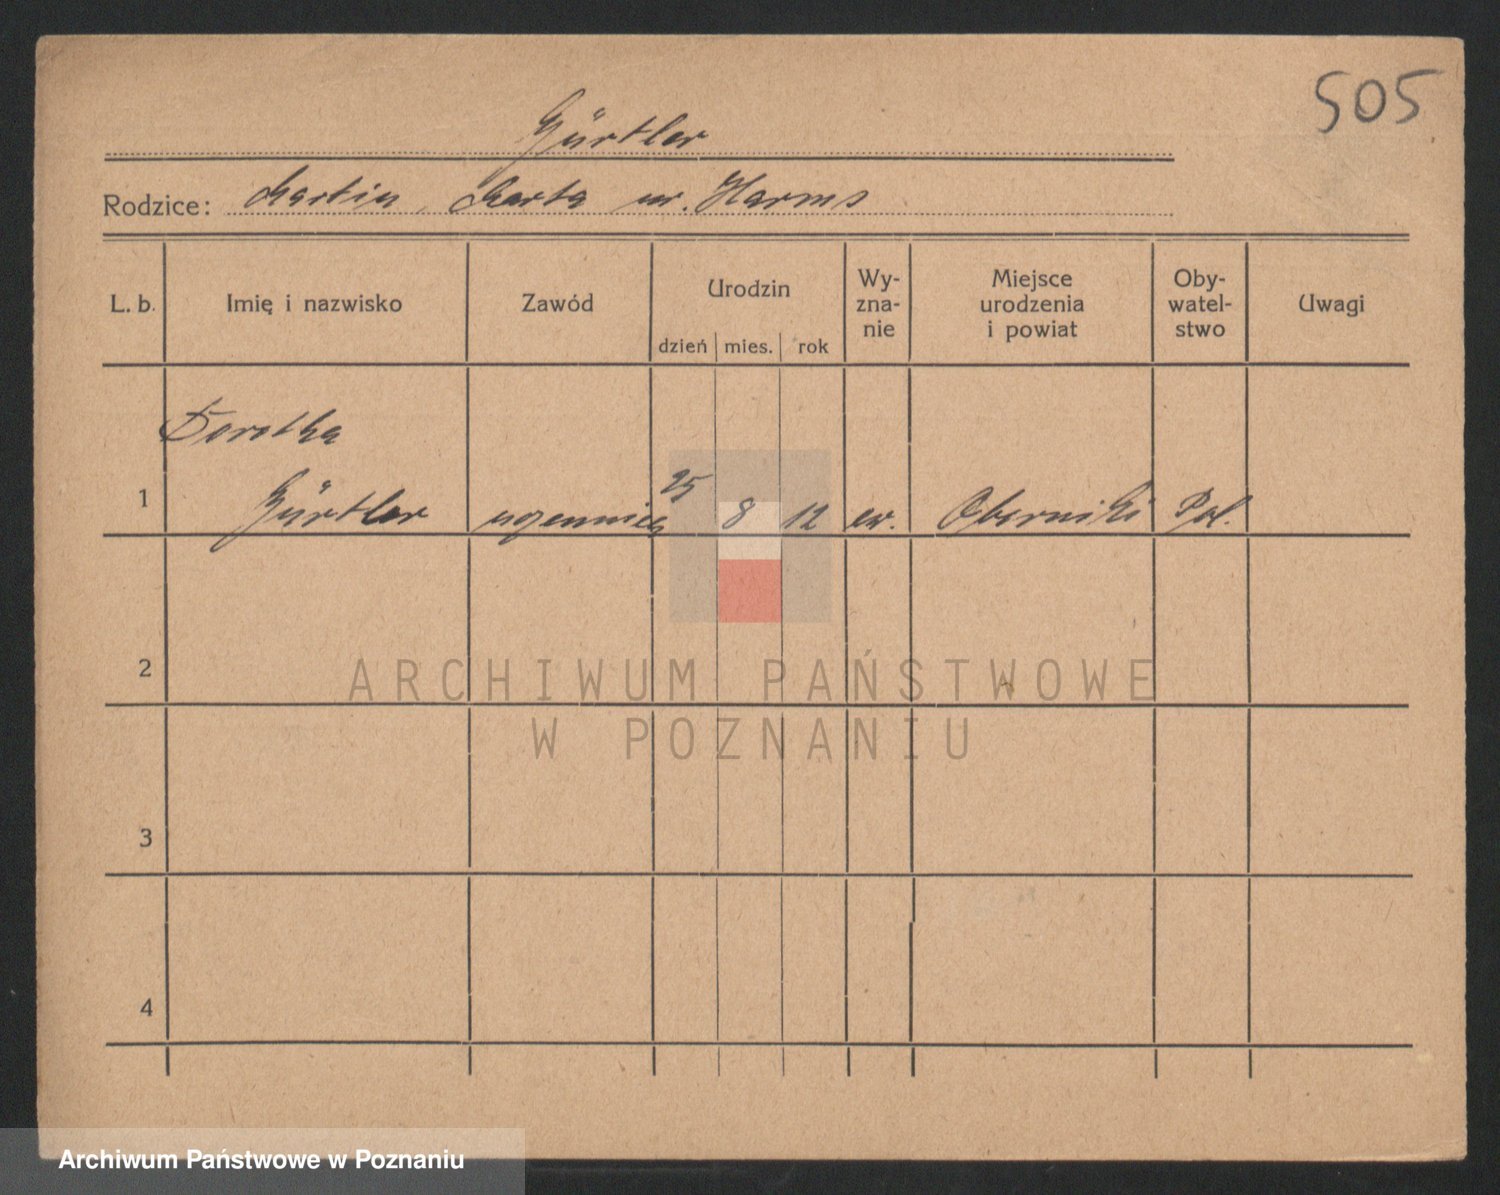 505
Gürtler
Rodzice: Martin, Marta ur. Harms
L. b.
Imię i nazwisko
Zawód
Urodzin
dzień mies. rok
Wy-
zna-
nie
Miejsce
urodzenia
i powiat
Oby-
watel-
stwo
Uwagi
Dorothea
1 Gürtler uczennica 25 8 12 ew. Oborniki Pol.
2
3
4
ARCHIWUM PAŃSTWOWE
W POZNANIU
Archiwum Państwowe w Poznaniu